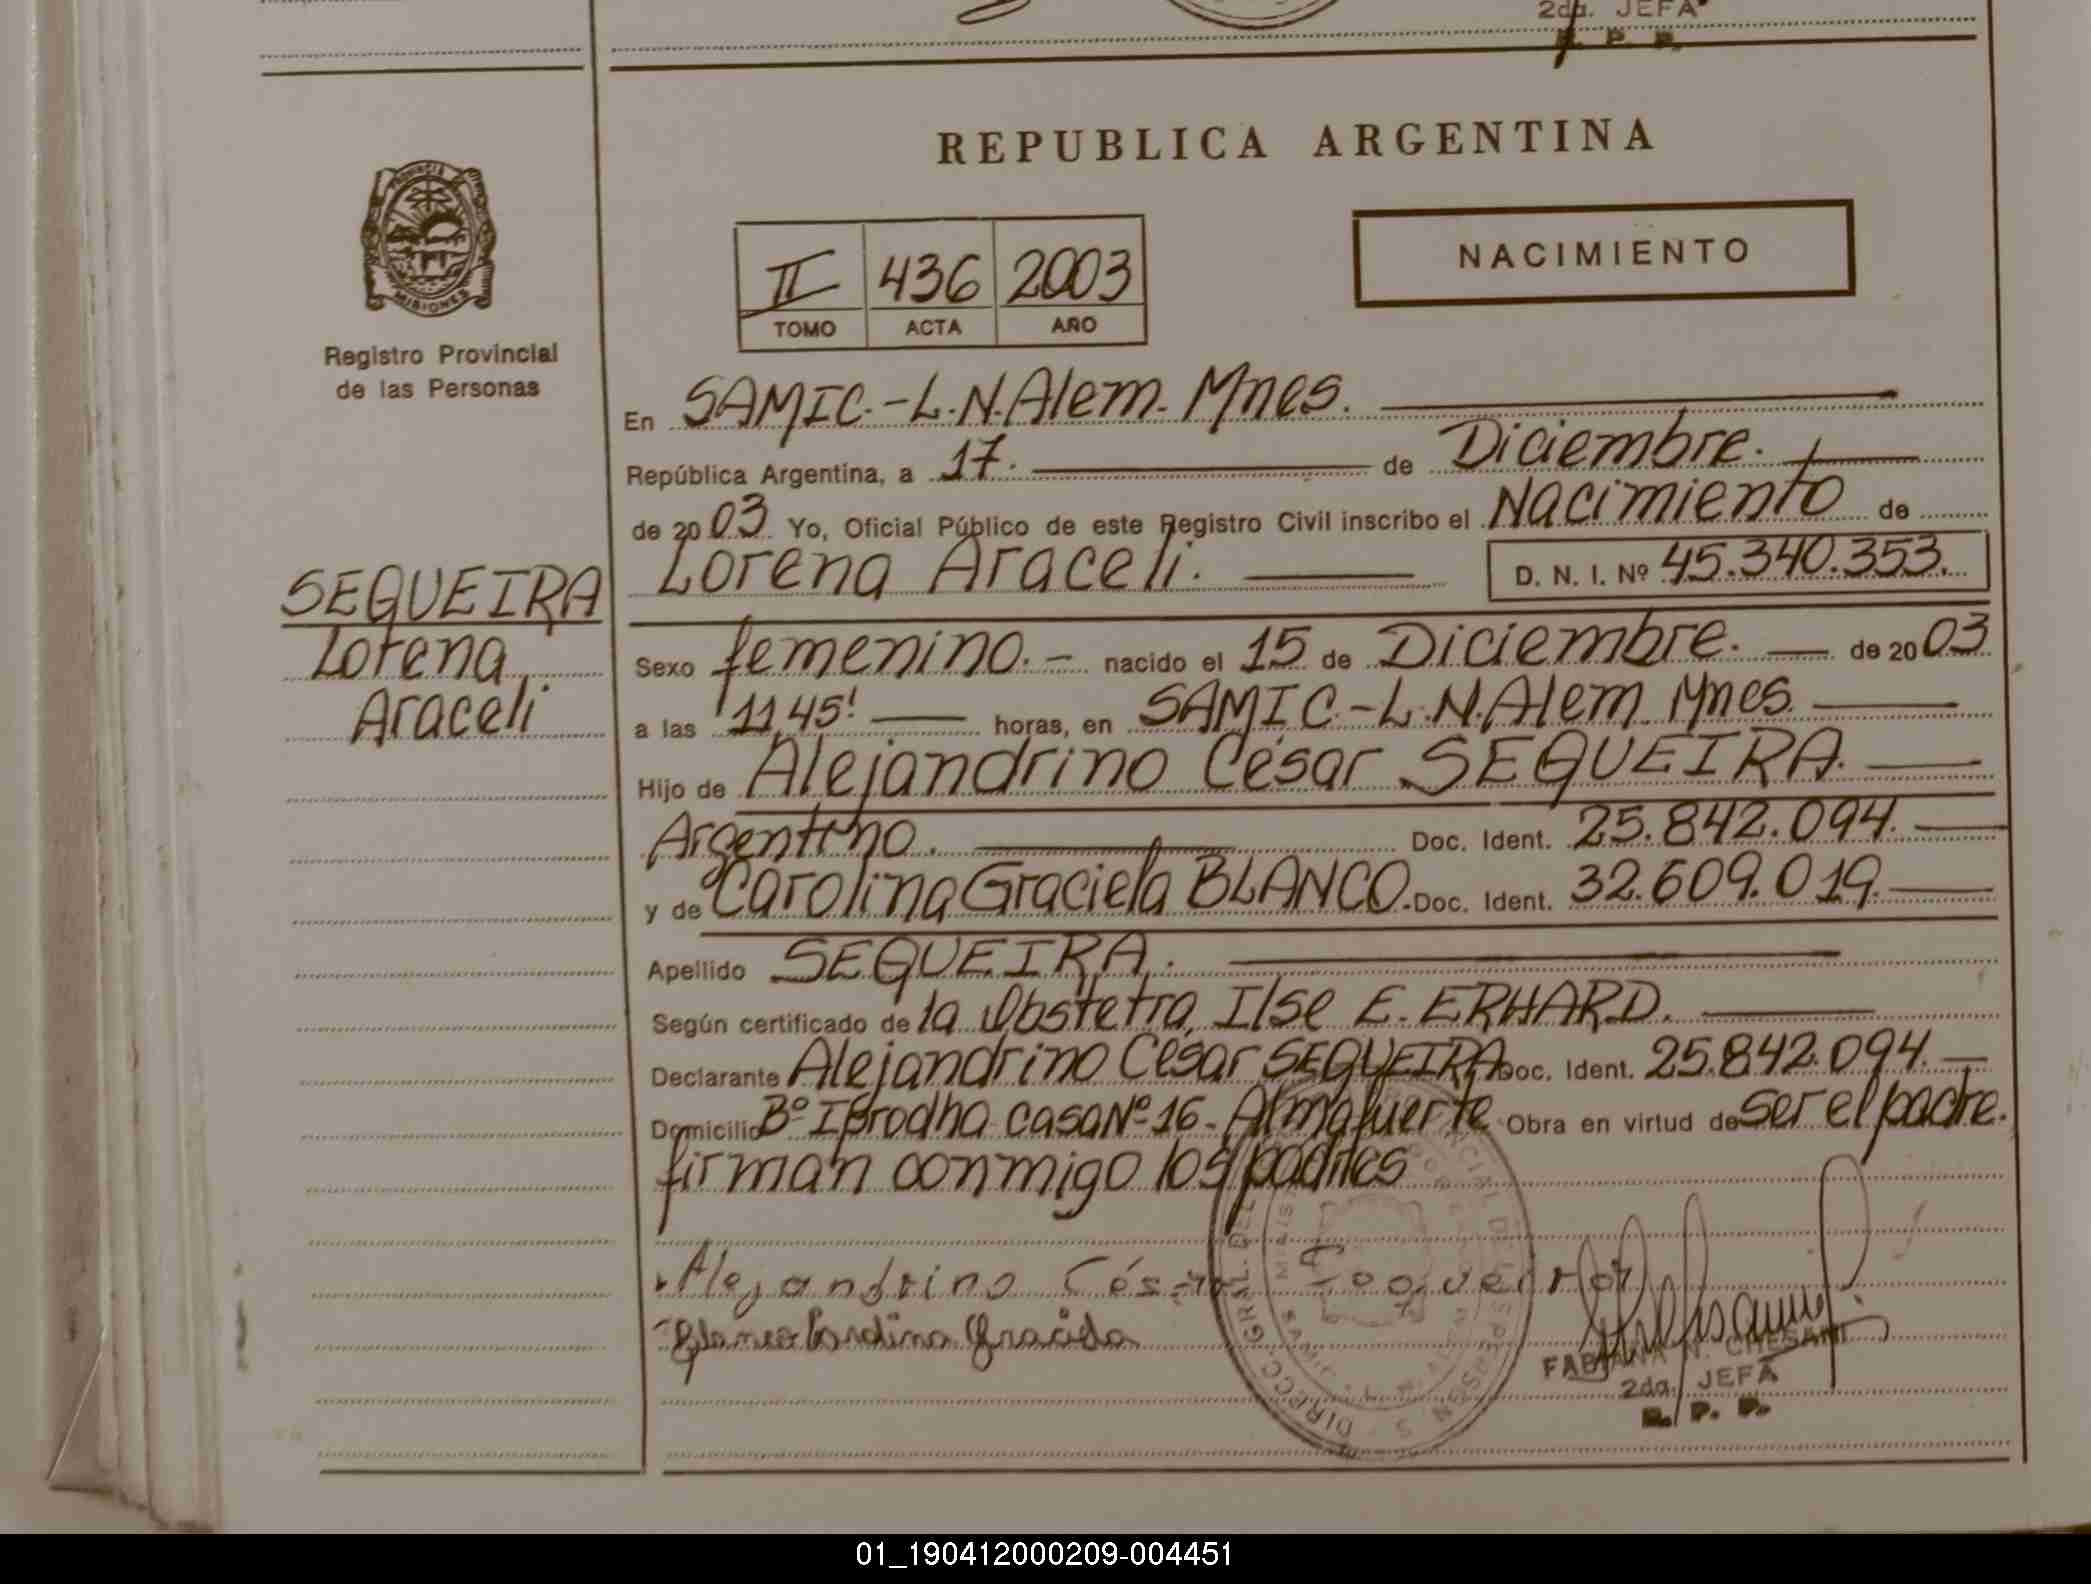 2da. JEFA
R. P. P.
REPUBLICA ARGENTINA
PROVINCIA
MISIONES
Registro Provincial
de las Personas
NACIMIENTO
II 436 2003
TOMO ACTA AÑO
SEQUEIRA
Lorena
Araceli
En SAMIC.-L.N.Alem. Mnes.
República Argentina, a 17. de Diciembre.
de 2003 Yo, Oficial Público de este Registro Civil inscribo el Nacimiento de
Lorena Araceli. D. N. I. Nº 45.340.353.
Sexo femenino.- nacido el 15 de Diciembre. de 2003
a las 11,45' horas, en SAMIC.-L.N.Alem. Mnes.
Hijo de Alejandrino César SEQUEIRA.
Argentino. Doc. Ident. 25.842.094.
y de Carolina Graciela BLANCO. Doc. Ident. 32.609.019.
Apellido SEQUEIRA.
Según certificado de la Obstetra, Ilse E. ERHARD.
Declarante Alejandrino César SEQUEIRA Doc. Ident. 25.842.094.
Domicilio Bº Iprodha casa Nº 16- Almafuerte Obra en virtud de ser el padre.
firman conmigo los padres
Alejandrino César Sequeira
Blanco Carolina Graciela
FABIANA N. CHESANI
2da. JEFA
R. P. P.
01_190412000209-004451